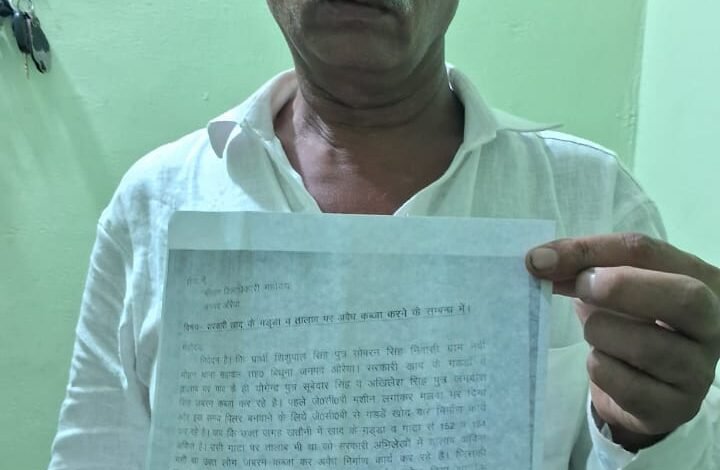 सेवा में,
श्रीमान जिलाधिकारी महोदय
जनपद औरैया
विषय- सरकारी खाद के गड्ढा व तालाब पर अवैध कब्जा करने के सम्बन्ध में।
महोदय,
निवेदन है। कि प्रार्थी शिशुपाल सिंह पुत्र सोबरन सिंह निवासी ग्राम
थाना सहायल तह0 बिधूना जनपद औरैया। सरकारी खाद के गड्डों व
तालाब पर गांव के ही योगेन्द्र पुत्र सूबेदार सिंह व अखिलेश सिंह पुत्र
सिंह जबरन कब्जा कर रहे है। पहले जे0सी0बी0 मशीन लगाकर मलवा भर दिया
और इस समय पिलर बनवाने के लिये जे0सी0बी0 से गड्डे खोद कर निर्माण कार्य
कर रहे है। जब कि उक्त जगह खतौनी में खाद के गड्डा व गाटा सं 152 व
अंकित है। उसी गाटा पर तालाब भी था जो सरकारी अभिलेखों में तालाब अंकित
उक्त लोग जबरन कब्जा कर अवैध निर्माण कार्य कर रहे है। जिसकी